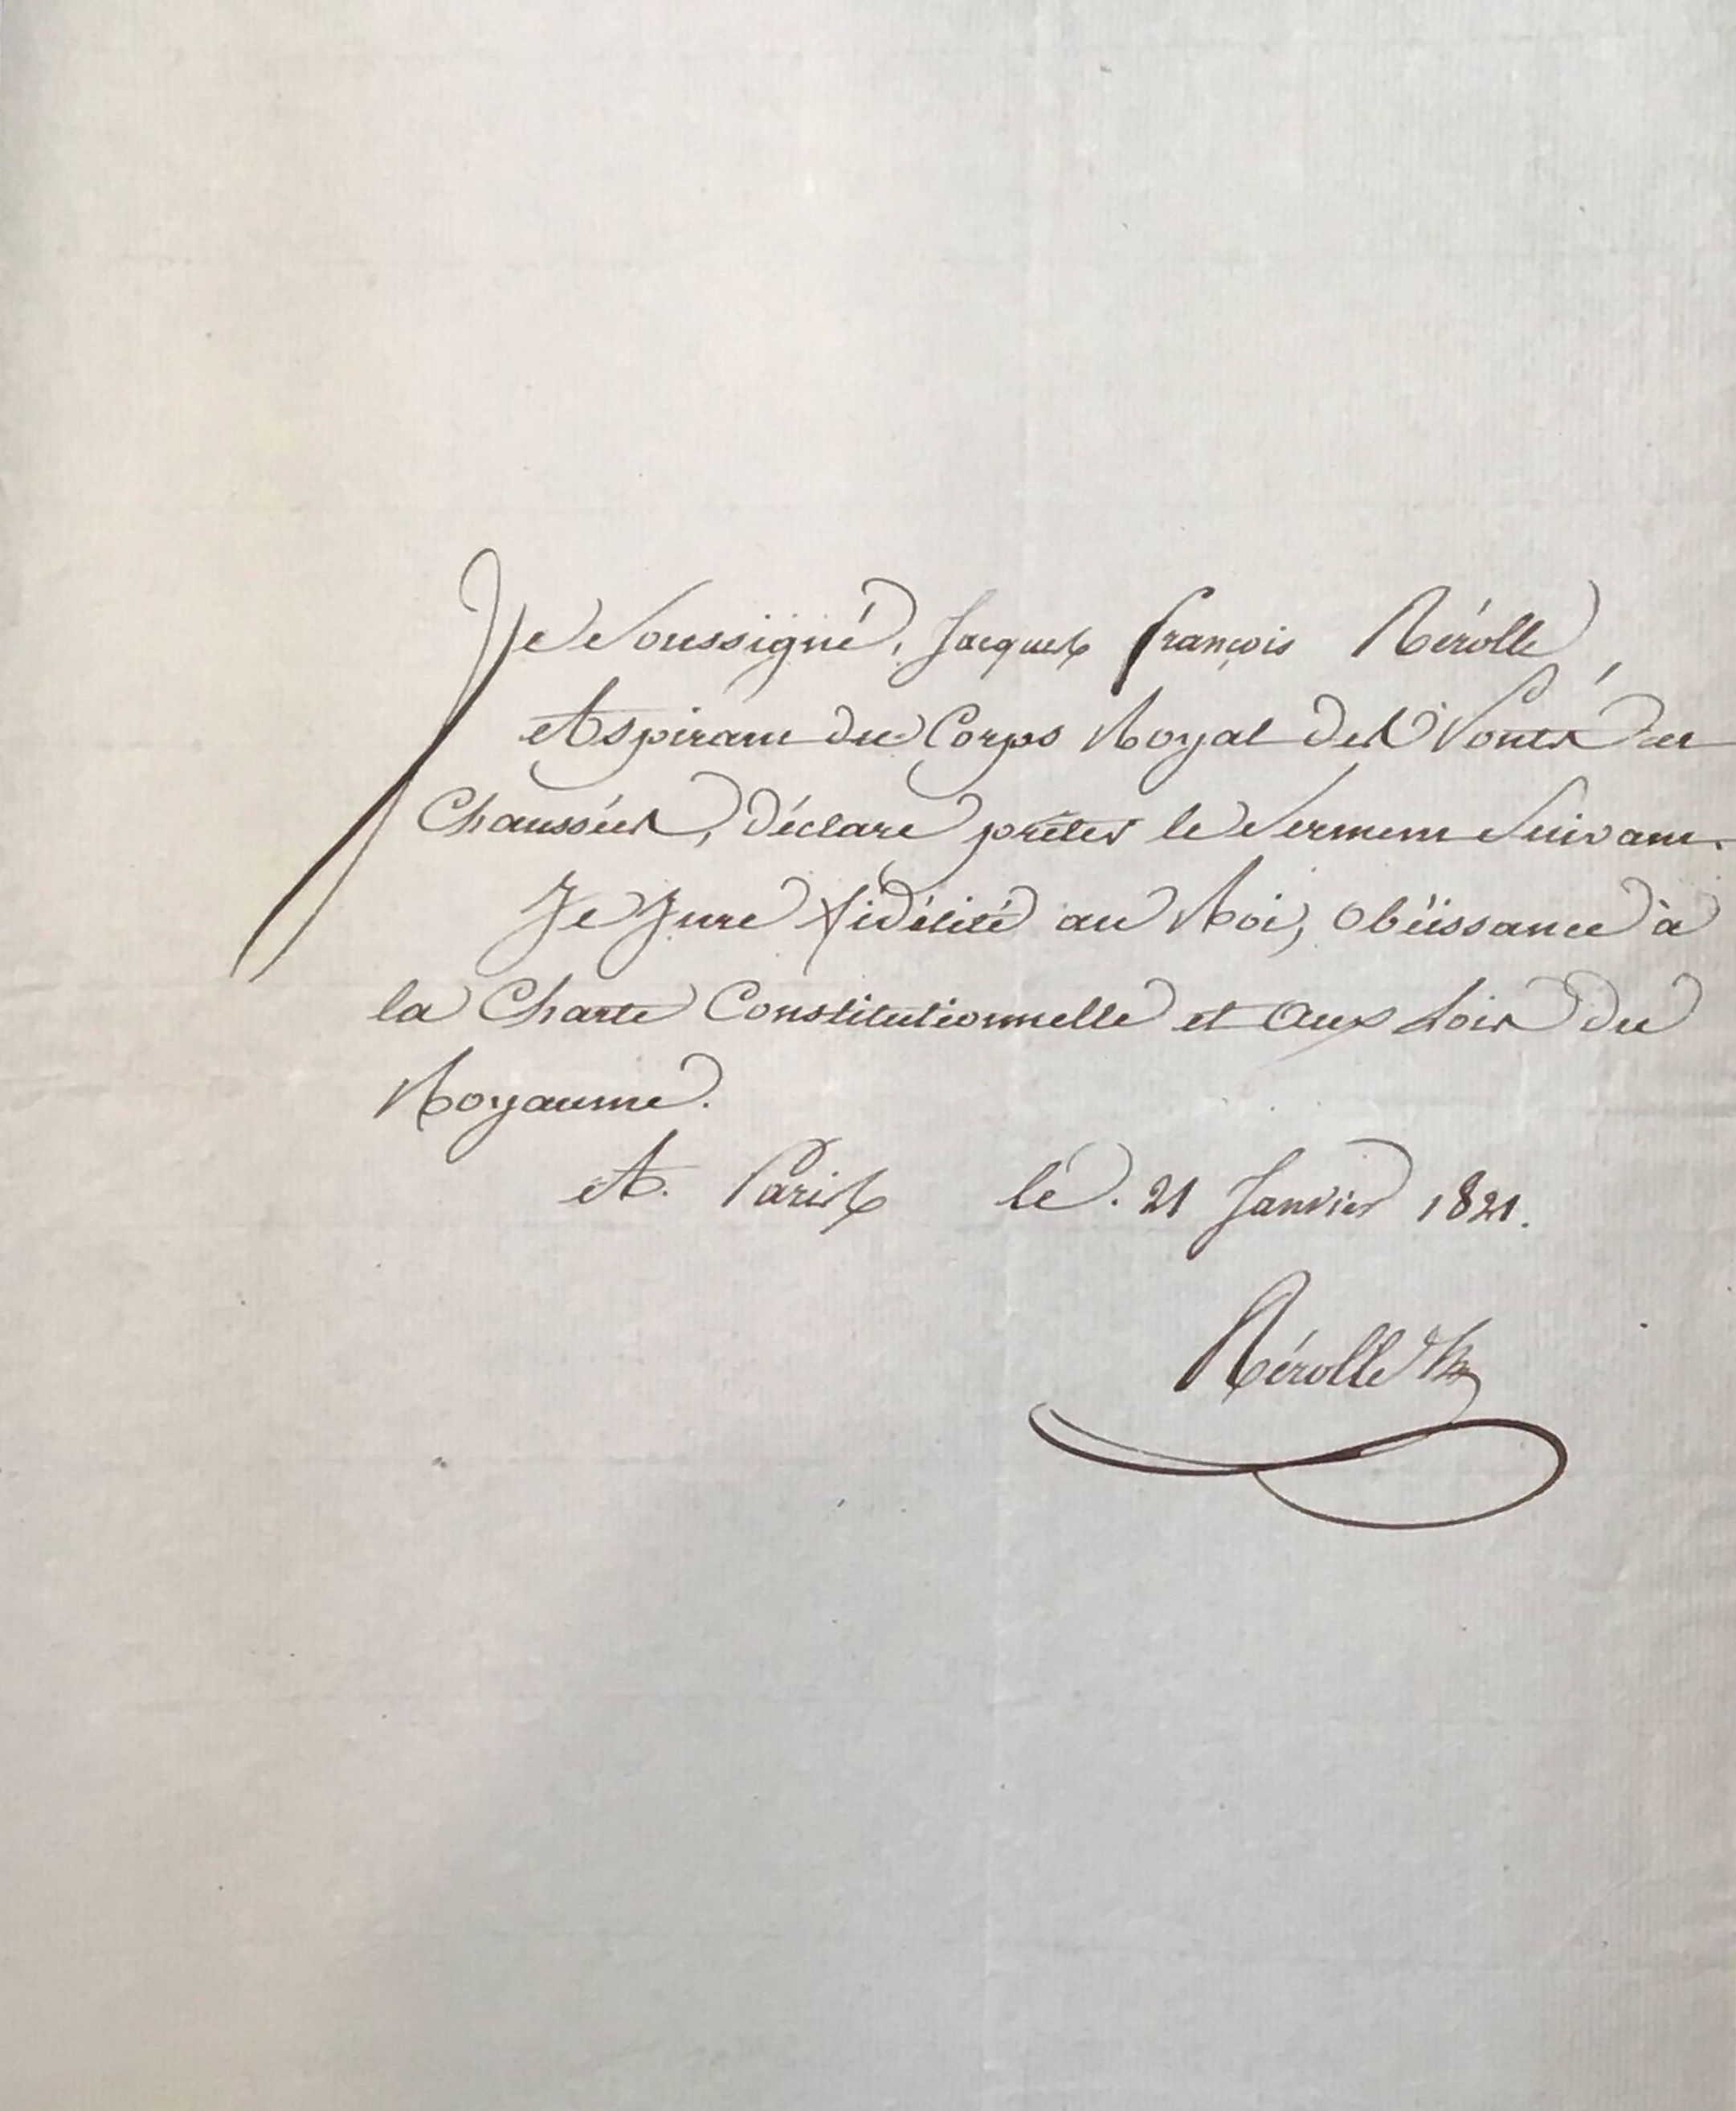 Je Soussigné, Jacques françois Rérolle,
Aspirant du Corps Royal des Ponts et
Chaussées, Déclare prêter le Serment Suivant.
Je Jure fidélité au Roi, Obéissance à
la Charte Constitutionnelle et Aux Lois Du
Royaume.
A. Paris le. 21 Janvier 1821.
Rérolle